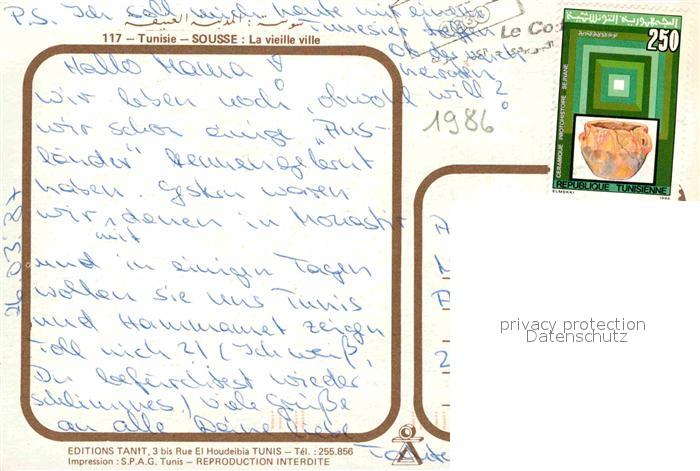 P.S. Ich soll mich heute mit einem
Tunesier treffen
Ob das
nerven
will?
سوسة : المدينة العتيقة
117 — Tunisie — SOUSSE : La vieille ville
Hallo Mama!
Wir leben noch, obwohl
wir schon einige "Aus-
länder" kennengelernt
haben. Gestern waren
wir mit denen in Monastir
und in einigen Tagen
wollen sie uns Tunis
und Hammamet zeigen
Toll nich?! (Ich weiß,
Du befürchtest wieder
schlimmes) Viele Grüße
an alle Deine liebe
1986
Le Co
الجمهورية التونسية
250
CERAMIQUE PROTOHISTOIRE SEJNANE
REPUBLIQUE TUNISIENNE
ELMEKKI
1986
privacy protection
Datenschutz
EDITIONS TANIT, 3 bis Rue El Houdeibia TUNIS — Tél. : 255.856
Impression : S.P.A.G. Tunis — REPRODUCTION INTERDITE